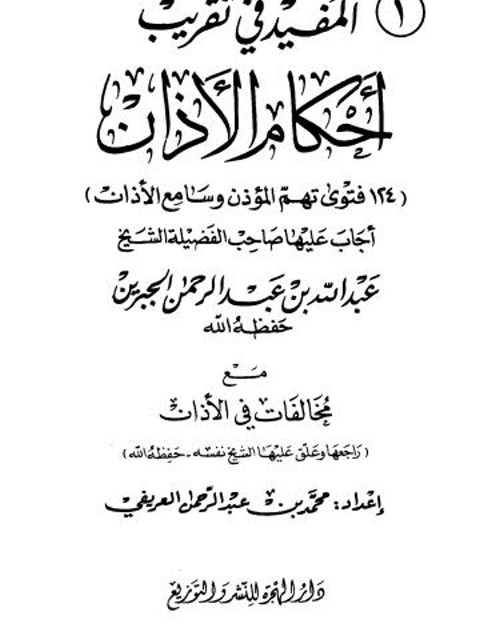 ١ المفيد في تقريب
أحكام الأذان
(١٢٤ فتوى تهم المؤذن وسامع الأذان)
أجاب عليها صاحب الفضيلة الشيخ
عبد الله بن عبد الرحمن الجبرين
حفظه الله
مع
مخالفات في الأذان
(راجعها وعلق عليها الشيخ نفسه - حفظه الله)
إعداد: محمد بن عبد الرحمن العريفي
دار الهجرة للنشر والتوزيع